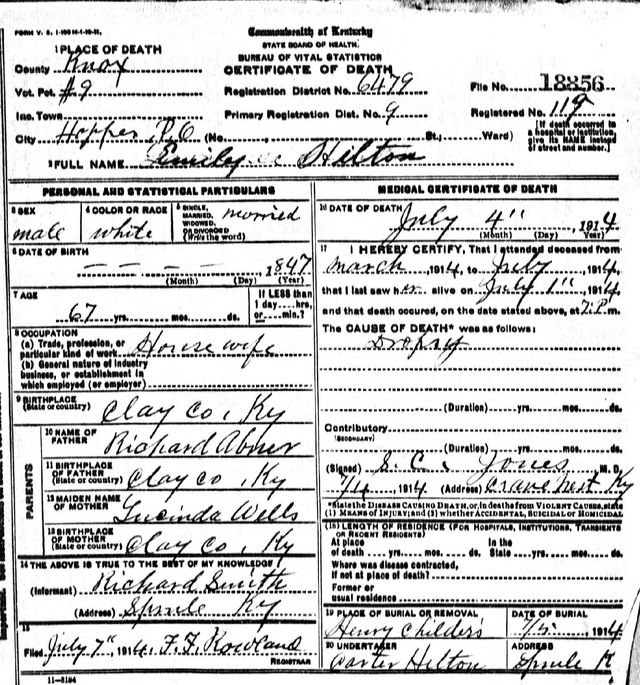 FORM V. S. 1-
Commonwealth of Kentucky
STATE BOARD OF HEALTH
BUREAU OF VITAL STATISTICS
CERTIFICATE OF DEATH
1 PLACE OF DEATH
County Knox
Vot. Pct. #9
Registration District No. 6479
File No. 18856
Inc. Town
Primary Registration Dist. No. 9
Registered No. 119
City Hopper P.O (No. St.; Ward)
[If death occurred in a hospital or institution, give its NAME instead of street and number.]
2 FULL NAME Emily Hilton
PERSONAL AND STATISTICAL PARTICULARS
3 SEX male
4 COLOR OR RACE white
5 SINGLE, MARRIED, WIDOWED, OR DIVORCED (Write the word) married
6 DATE OF BIRTH
— — — —, 1847
(Month) (Day) (Year)
7 AGE
67 yrs. mos. ds.
If LESS than 1 day...hrs. or....min.?
8 OCCUPATION
(a) Trade, profession, or particular kind of work House wife
(b) General nature of industry business, or establishment in which employed (or employer)
9 BIRTHPLACE (State or country) Clay Co, Ky
PARENTS
10 NAME OF FATHER Richard Abner
11 BIRTHPLACE OF FATHER (State or country) Clay co, Ky
12 MAIDEN NAME OF MOTHER Lucinda Wells
13 BIRTHPLACE OF MOTHER (State or country) Clay co, Ky
14 THE ABOVE IS TRUE TO THE BEST OF MY KNOWLEDGE
(Informant) Richard Smith
(Address) Sprule Ky
15
Filed July 7", 1914. F. F. Rowland
REGISTRAR
11—3184
MEDICAL CERTIFICATE OF DEATH
16 DATE OF DEATH July 4" 1914
(Month) (Day) Year)
17 I HEREBY CERTIFY, That I attended deceased from
march, 1914, to July, 1914,
that I last saw her alive on July 1", 1914,
and that death occured, on the date stated above, at 7 P. m.
The CAUSE OF DEATH* was as follows:
Dropsy
(Duration) yrs. mos. ds.
Contributory
(SECONDARY)
(Duration) yrs. mos. ds.
(Signed) S. C. Jones M. D.
7/4, 1914 (Address) Crane Nest Ky
*State the DISEASE CAUSING DEATH, or, in deaths from VIOLENT CAUSES, state
(1) MEANS OF INJURY; and (2) whether ACCIDENTAL, SUICIDAL or HOMICIDAL
(18) LENGTH OF RESIDENCE (FOR HOSPITALS, INSTITUTIONS, TRANSIENTS OR RECENT RESIDENTS)
At place of death yrs. mos. ds.
In the State yrs. mos. ds.
Where was disease contracted,
if not at place of death?
Former or
usual residence
19 PLACE OF BURIAL OR REMOVAL
Henry Childers
DATE OF BURIAL
7/5, 1914
20 UNDERTAKER
Carter Hilton
ADDRESS
Sprule K